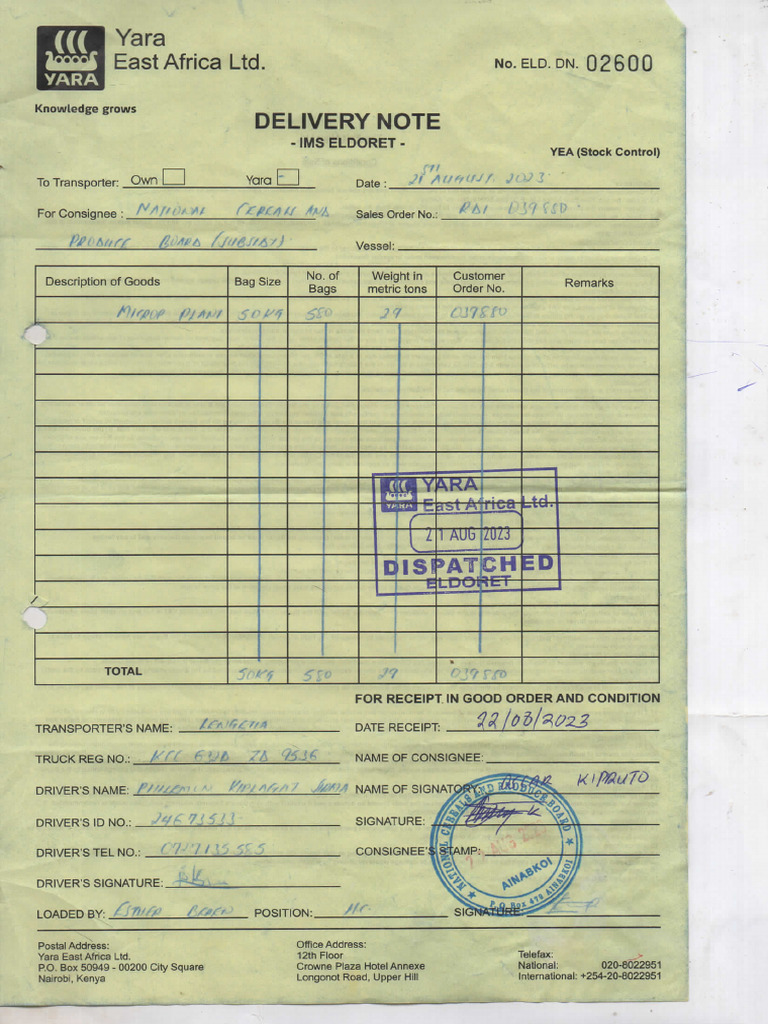 Yara
East Africa Ltd.
YARA
No. ELD. DN. 02600
Knowledge grows
DELIVERY NOTE
- IMS ELDORET -
YEA (Stock Control)
To Transporter: Own Yara - Date : AUGUST 2023
For Consignee : NATIONAL CEREALS AND Sales Order No.: 039880
PRODUCE BOARD (SUBSIDY) Vessel:
Description of Goods Bag Size No. of Bags Weight in metric tons Customer Order No. Remarks
MICROP PLANT 50KG 580 29 039880
YARA
YARA
East Africa Ltd.
21 AUG 2023
DISPATCHED
ELDORET
TOTAL 50KG 580 29 039880
FOR RECEIPT IN GOOD ORDER AND CONDITION
TRANSPORTER'S NAME: DATE RECEIPT: 22/08/2023
TRUCK REG NO.: NAME OF CONSIGNEE:
DRIVER'S NAME: NAME OF SIGNATORY: KIPRUTO
DRIVER'S ID NO.: 24673533 SIGNATURE:
DRIVER'S TEL NO.: 0727135585 CONSIGNEE'S STAMP:
NATIONAL CEREALS AND PRODUCE BOARD
AINABKOI
P.O. Box 475 AINABKOI
DRIVER'S SIGNATURE:
LOADED BY: ESTHER POSITION: SIGNATURE:
Postal Address:
Yara East Africa Ltd.
P.O. Box 50949 - 00200 City Square
Nairobi, Kenya
Office Address:
12th Floor
Crowne Plaza Hotel Annexe
Longonot Road, Upper Hill
Telefax:
National: 020-8022951
International: +254-20-8022951